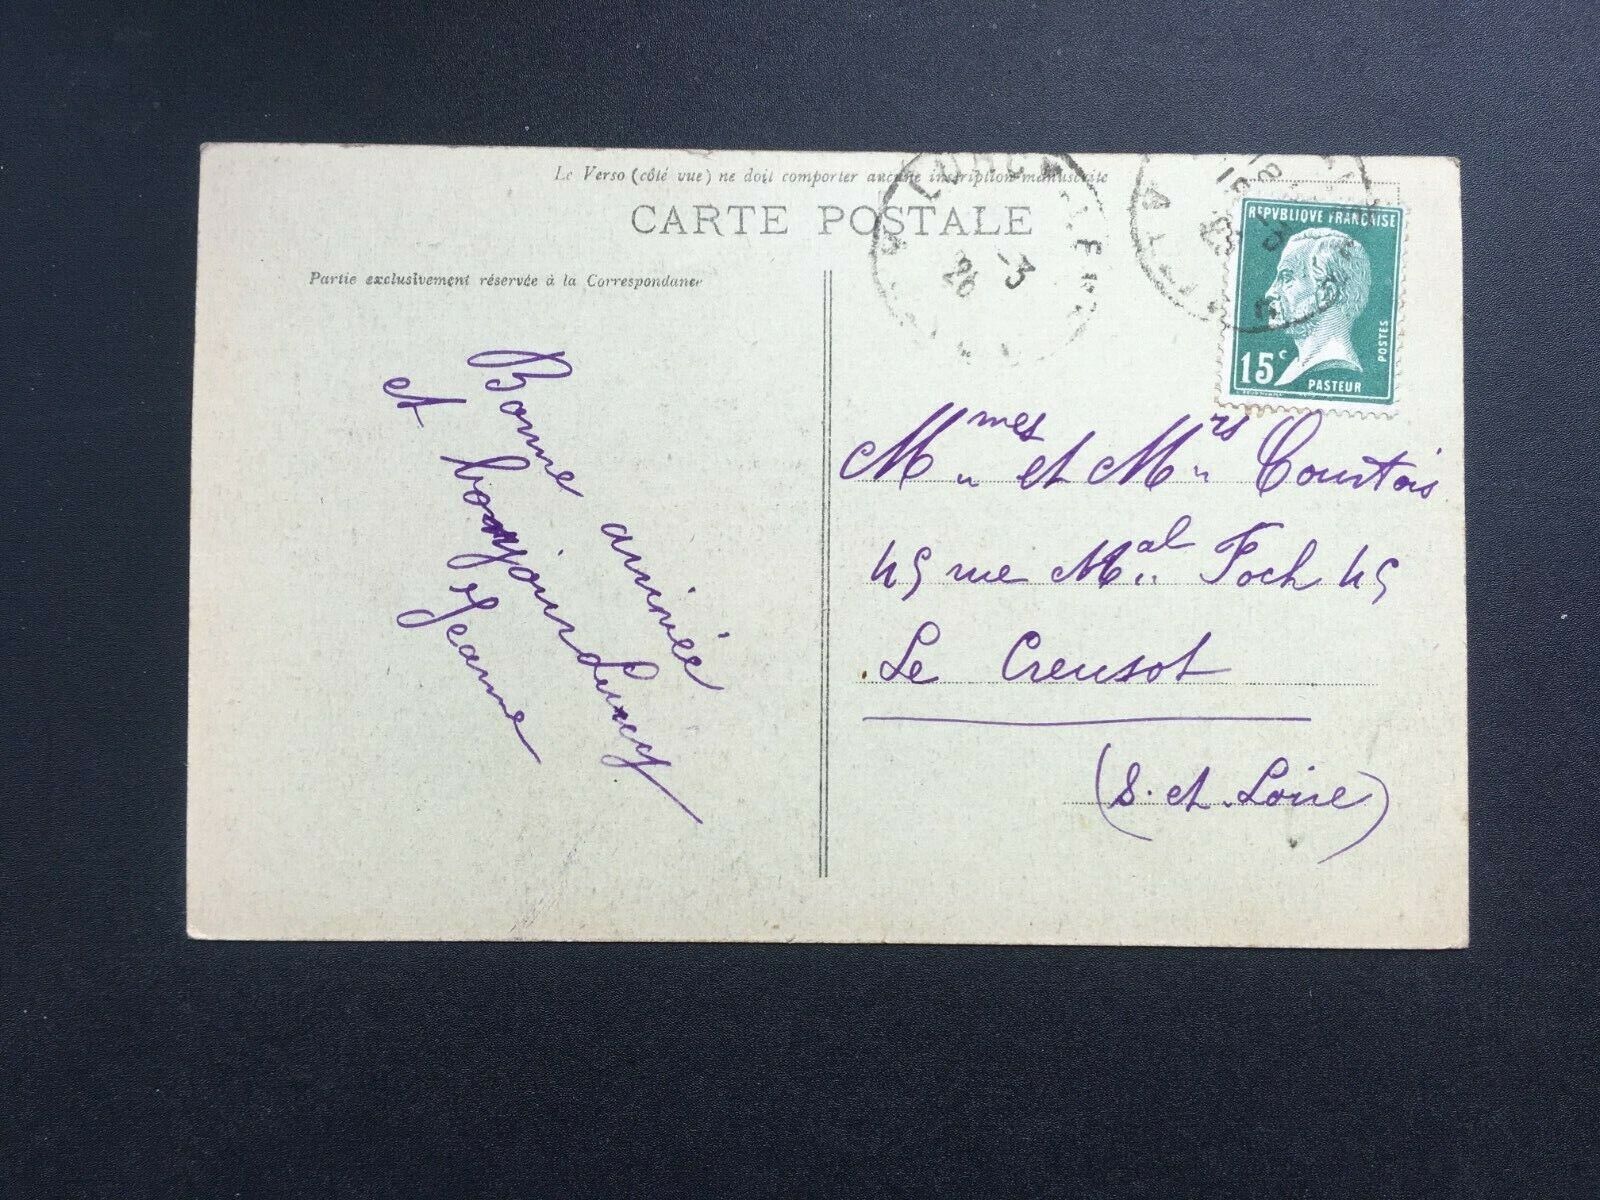 Le Verso (côté vue) ne doit comporter aucune inscription manuscrite
CARTE POSTALE
Partie exclusivement réservée à la Correspondance
Bonne année
et bonjour de Lucy
Jeanne
-3
26
REPVBLIQUE FRANÇAISE
POSTES
15c
PASTEUR
Mmes et Mrs Courtois
45 rue Mal Foch 45
Le Creusot
(S. et Loire)